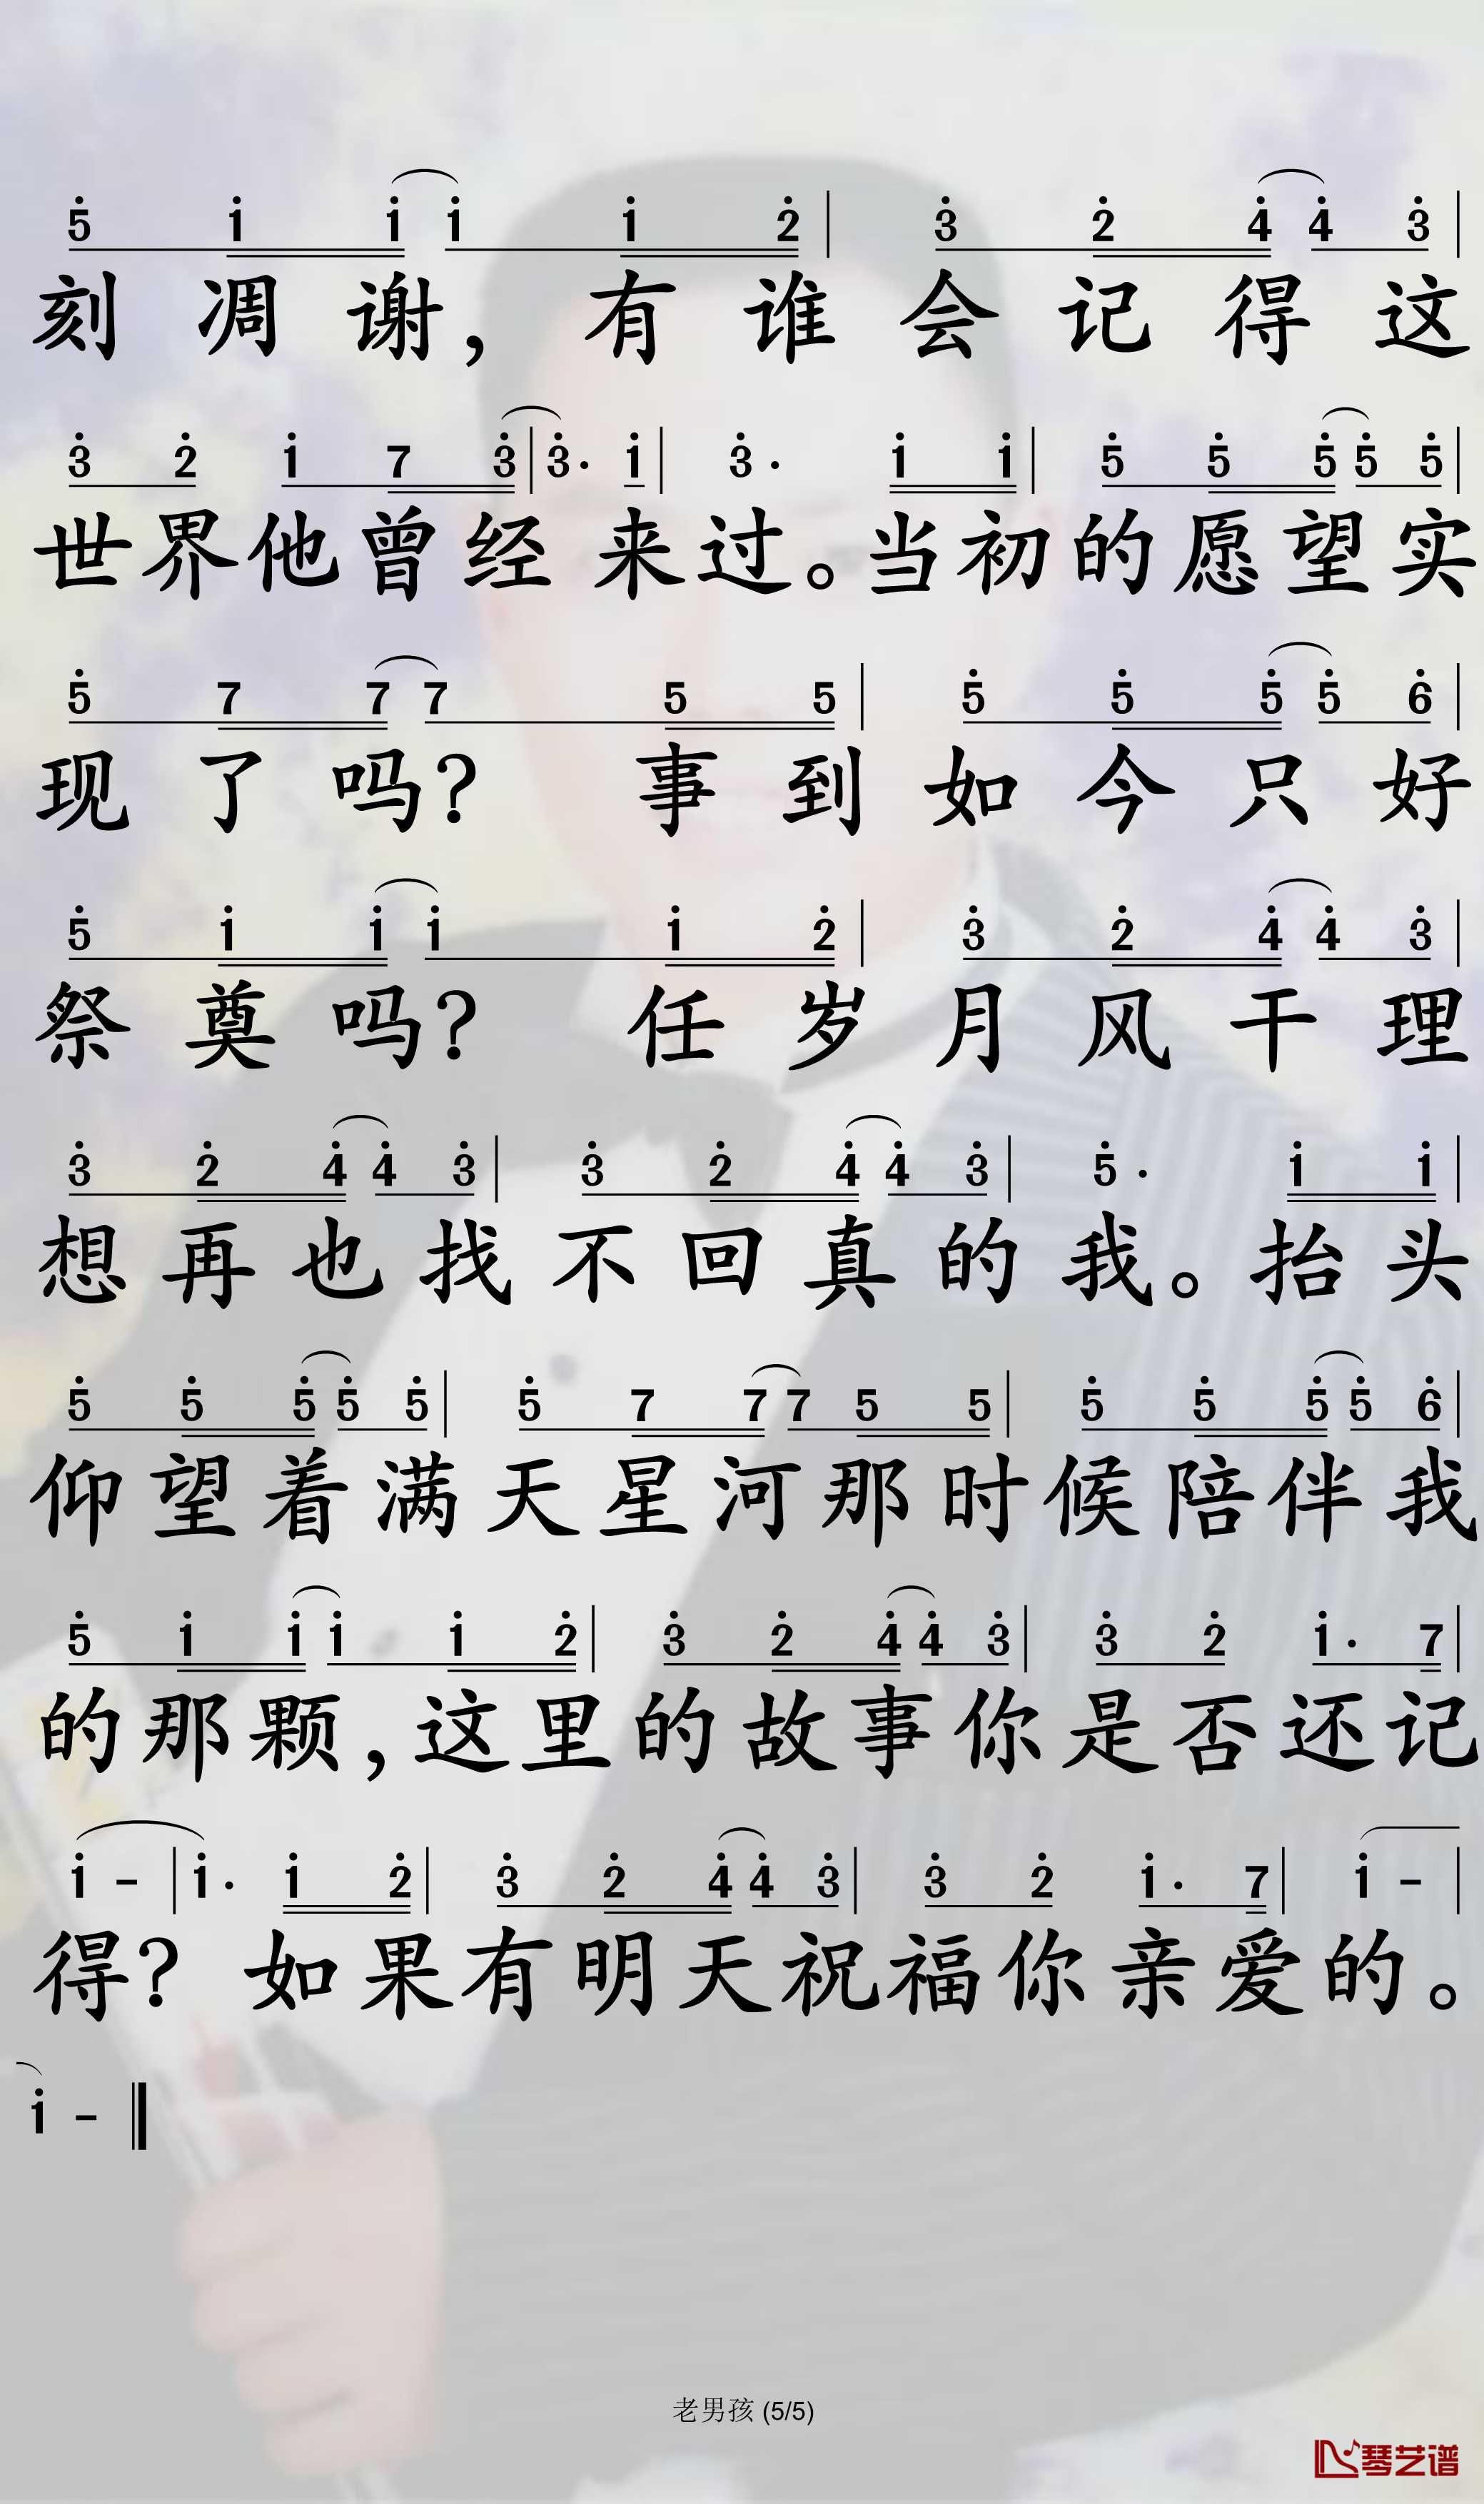 5̇ 1̇ 1̇ 1̇ 1̇ 2̇ | 3̇ 2̇ 4̇ 4̇ 3̇ |
刻凋谢，有谁会记得这
3̇ 2̇ 1̇ 7 3̇ | 3̇· 1̇ | 3̇· 1̇ 1̇ | 5̇ 5̇ 5̇ 5̇ 5̇ |
世界他曾经来过。当初的愿望实
5̇ 7 7 7 5 5 | 5̇ 5̇ 5̇ 5̇ 6̇ |
现了吗？事到如今只好
5̇ 1̇ 1̇ 1̇ 1̇ 2̇ | 3̇ 2̇ 4̇ 4̇ 3̇ |
祭奠吗？任岁月风干理
3̇ 2̇ 4̇ 4̇ 3̇ | 3̇ 2̇ 4̇ 4̇ 3̇ | 5̇· 1̇ 1̇ |
想再也找不回真的我。抬头
5̇ 5̇ 5̇ 5̇ 5̇ | 5̇ 7 7 7 5 5 | 5̇ 5̇ 5̇ 5̇ 6̇ |
仰望着满天星河那时候陪伴我
5̇ 1̇ 1̇ 1̇ 1̇ 2̇ | 3̇ 2̇ 4̇ 4̇ 3̇ | 3̇ 2̇ 1̇· 7 |
的那颗，这里的故事你是否还记
1̇ - | 1̇· 1̇ 2̇ | 3̇ 2̇ 4̇ 4̇ 3̇ | 3̇ 2̇ 1̇· 7 | 1̇ - |
得？如果有明天祝福你亲爱的。
1̇ - ‖
老男孩 (5/5)
琴艺谱